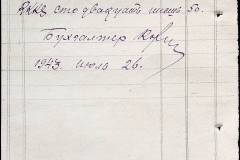 сто двадцать шесть 50
Бухгалтер
1943 июля 26.